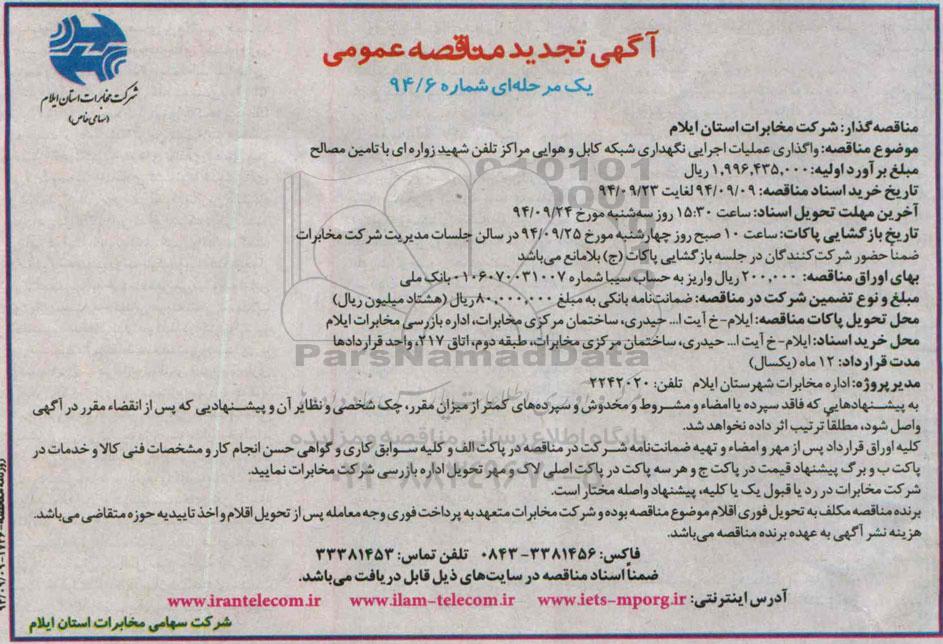 آگهی تجدید مناقصه عمومی
یک مرحله‌ای شماره ۹۴/۶
شرکت مخابرات استان ایلام
(سهامی خاص)
مناقصه‌گذار: شرکت مخابرات استان ایلام
موضوع مناقصه: واگذاری عملیات اجرایی نگهداری شبکه کابل و هوایی مراکز تلفن شهید زواره ای با تامین مصالح
مبلغ برآورد اولیه: ۱,۹۹۶,۴۳۵,۰۰۰ ریال
تاریخ خرید اسناد مناقصه: ۹۴/۰۹/۰۹ لغایت ۹۴/۰۹/۲۳
آخرین مهلت تحویل اسناد: ساعت ۱۵:۳۰ روز سه‌شنبه مورخ ۹۴/۰۹/۲۴
تاریخ بازگشایی پاکات: ساعت ۱۰ صبح روز چهارشنبه مورخ ۹۴/۰۹/۲۵ در سالن جلسات مدیریت شرکت مخابرات
ضمنا حضور شرکت‌کنندگان در جلسه بازگشایی پاکات (ج) بلامانع می‌باشد
بهای اوراق مناقصه: ۲۰۰,۰۰۰ ریال واریز به حساب سیبا شماره ۰۱۰۶۰۷۰۰۳۱۰۰۷ بانک ملی
مبلغ و نوع تضمین شرکت در مناقصه: ضمانت‌نامه بانکی به مبلغ ۸۰,۰۰۰,۰۰۰ ریال (هشتاد میلیون ریال)
محل تحویل پاکات مناقصه: ایلام-خ آیت ا... حیدری، ساختمان مرکزی مخابرات، اداره بازرسی مخابرات ایلام
محل خرید اسناد: ایلام-خ آیت ا... حیدری، ساختمان مرکزی مخابرات، طبقه دوم، اتاق ۲۱۷، واحد قراردادها
ParsNamadData
مدت قرارداد: ۱۲ ماه (یکسال)
مدیر پروژه: اداره مخابرات شهرستان ایلام تلفن: ۲۲۴۲۰۲۰
به پیشنهادهایی که فاقد سپرده یا امضاء و مشروط و مخدوش و سپرده‌های کمتر از میزان مقرر، چک شخصی و نظایر آن و پیشنهادیی که پس از انقضاء مقرر در آگهی
واصل شود، مطلقاً ترتیب اثر داده نخواهد شد.
پایگاه اطلاع رسانی مناقصه و مزایده
کلیه اوراق قرارداد پس از مهر و امضاء و تهیه ضمانت‌نامه شرکت در مناقصه در پاکت الف و کلیه سوابق کاری و گواهی حسن انجام کار و مشخصات فنی کالا و خدمات در
پاکت ب و برگ پیشنهاد قیمت در پاکت ج و هر سه پاکت در پاکت اصلی لاک و مهر تحویل اداره بازرسی شرکت مخابرات نمایید.
شرکت مخابرات در رد یا قبول یک یا کلیه، پیشنهاد واصله مختار است.
برنده مناقصه مکلف به تحویل فوری اقلام موضوع مناقصه بوده و شرکت مخابرات متعهد به پرداخت فوری وجه معامله پس از تحویل اقلام و اخذ تاییدیه حوزه متقاضی می‌باشد.
هزینه نشر آگهی به عهده برنده مناقصه می‌باشد.
فاکس: ۳۳۳۸۱۴۵۶-۰۸۴۳ تلفن تماس: ۳۳۳۸۱۴۵۳
ضمناً اسناد مناقصه در سایت‌های ذیل قابل دریافت می‌باشد.
آدرس اینترنتی: www.iets-mporg.ir www.ilam-telecom.ir www.irantelecom.ir
شرکت سهامی مخابرات استان ایلام